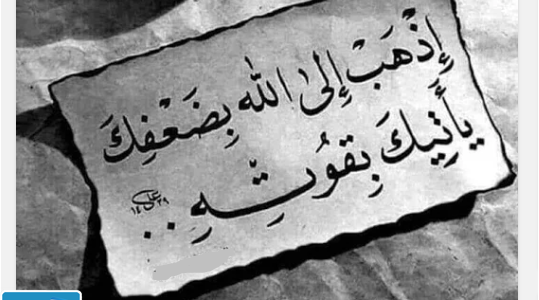 إِذْهَبْ إِلىٰ اللّٰه بِضَعْفِكَ
يأَتِيكَ بِقوُتِّهِ ..